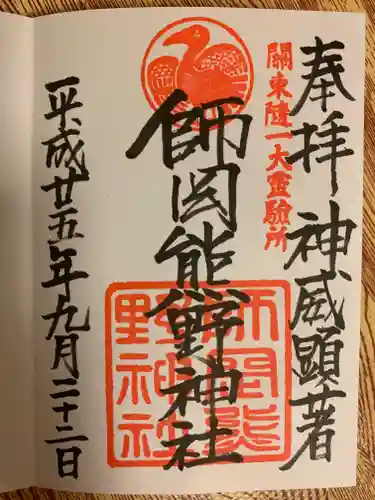 奉拝 神威顕著
關東随一大霊験所
師岡熊野神社
師岡熊野神社
平成廿五年九月二十二日